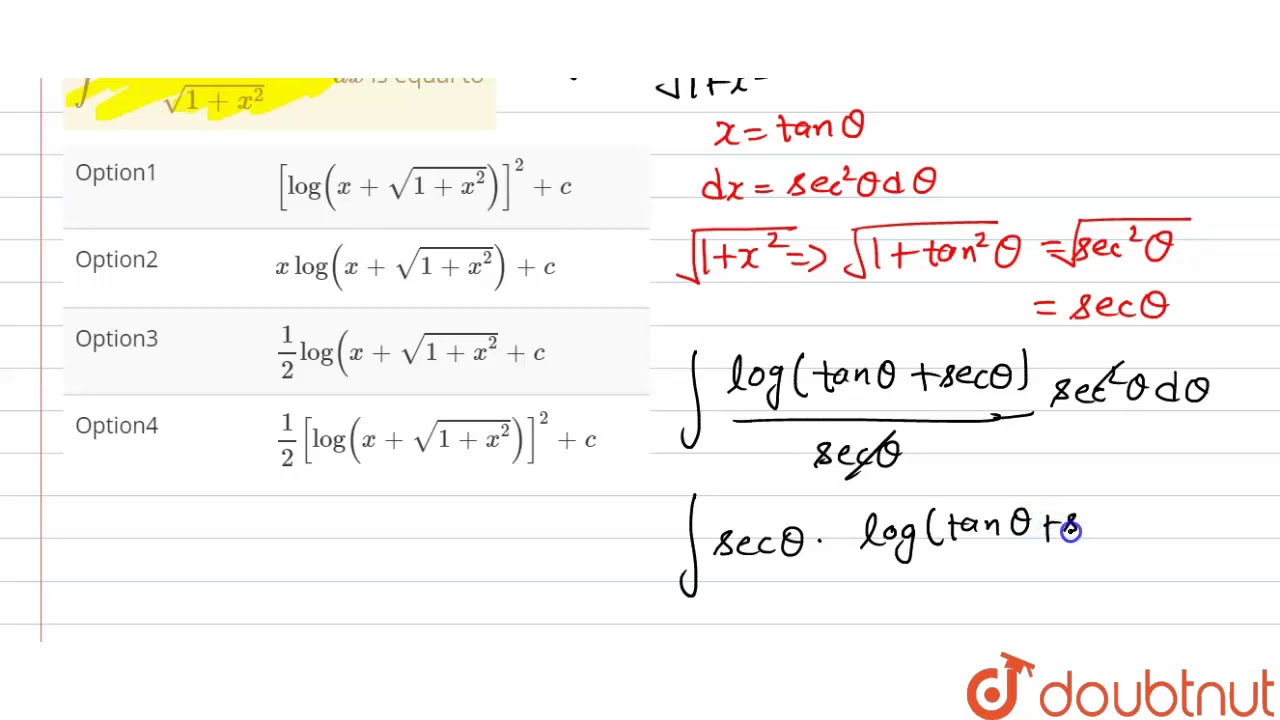 ∫ √(1 + x²) dx is equal to
Option1 [log(x + √(1 + x²))]² + c
Option2 x log(x + √(1 + x²)) + c
Option3 1/2 log(x + √(1 + x²) + c
Option4 1/2 [log(x + √(1 + x²))]² + c
√1+x²
x = tan θ
dx = sec²θ dθ
√(1+x²) => √(1+tan²θ) = √(sec²θ)
= sec θ
∫ log(tanθ + secθ) / secθ sec²θ dθ
∫ secθ · log(tanθ + s
doubtnut